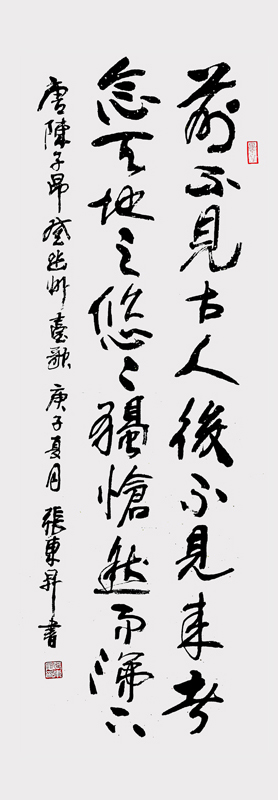 前不見古人後不見来者
念天地之悠々獨愴然而涕下
唐陳子昂登幽州臺歌 庚子夏月 張東昇書